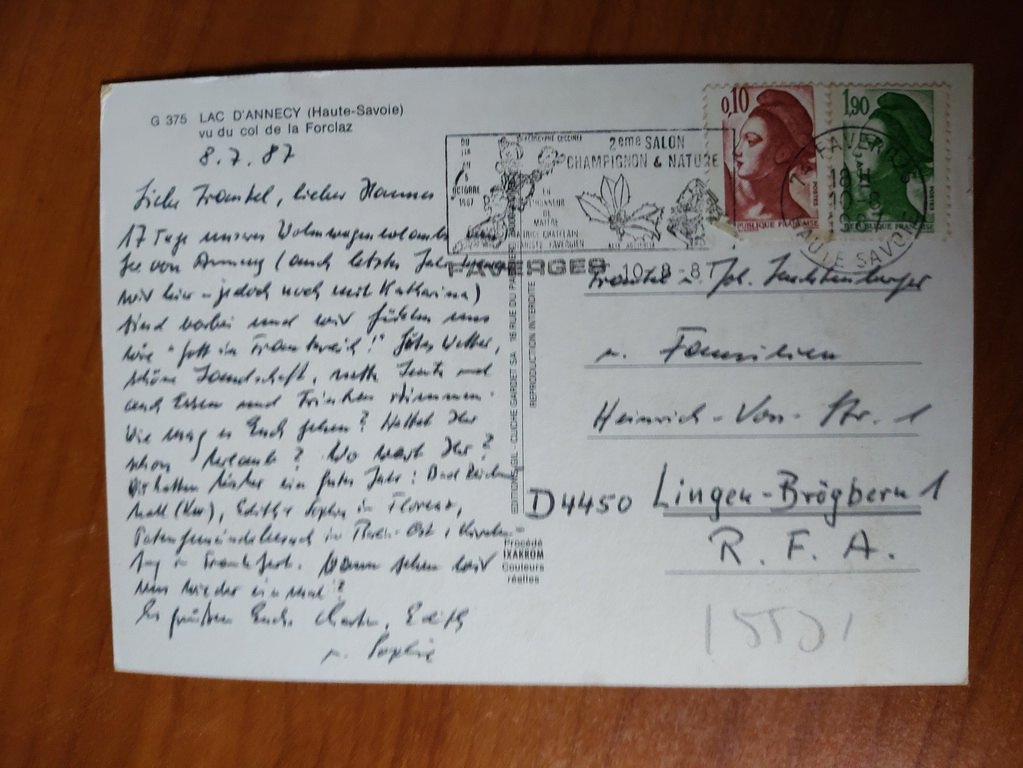 G 375 LAC D'ANNECY (Haute-Savoie)
vu du col de la Forclaz
8.7.87
lieber Hannes
17 Tage unseres Wohnwagenurlaubs am
See von Annecy (auch letztes Jahr waren
wir hier - jedoch noch mit Katharina)
sind vorbei und wir fühlen uns
wie "Gott in Frankreich!" Gutes Wetter,
schöne Landschaft, nette Leute und
auch Essen und Trinken stimmen.
Wie mag es Euch gehen? Hattet Ihr
schon Urlaub? Wo wart Ihr?
Wir hatten bisher ein gutes Jahr: Bad Reichen-
hall (Kur), Edith + Sophie in Florenz,
Partnergemeindebesuch in Ost, Kirchen-
tag in Frankfurt. Wann sehen wir
uns wieder einmal?
Es grüßen Euch Edith
u. Sophie
EDITIONS GIL - CLICHÉ GARDET SA 16 RUE DU
REPRODUCTION INTERDITE
Procédé
IXAKROM
Couleurs
réelles
DU
AU
5
OCTOBRE
1987
EN
L'HONNEUR
DE
MAITRE
2ème SALON
CHAMPIGNON & NATURE
FAVERGES
10-8-87
0,10
POSTES
REPUBLIQUE FRANÇAISE
1,90
REPUBLIQUE FRANÇAISE
74 FAVERGES
18 H
10-8
1987
HAUTE SAVOIE
u. Joh.
u. Familien
Heinrich-Von- Str. 1
D 4450 Lingen-Brögbern 1
R. F. A.